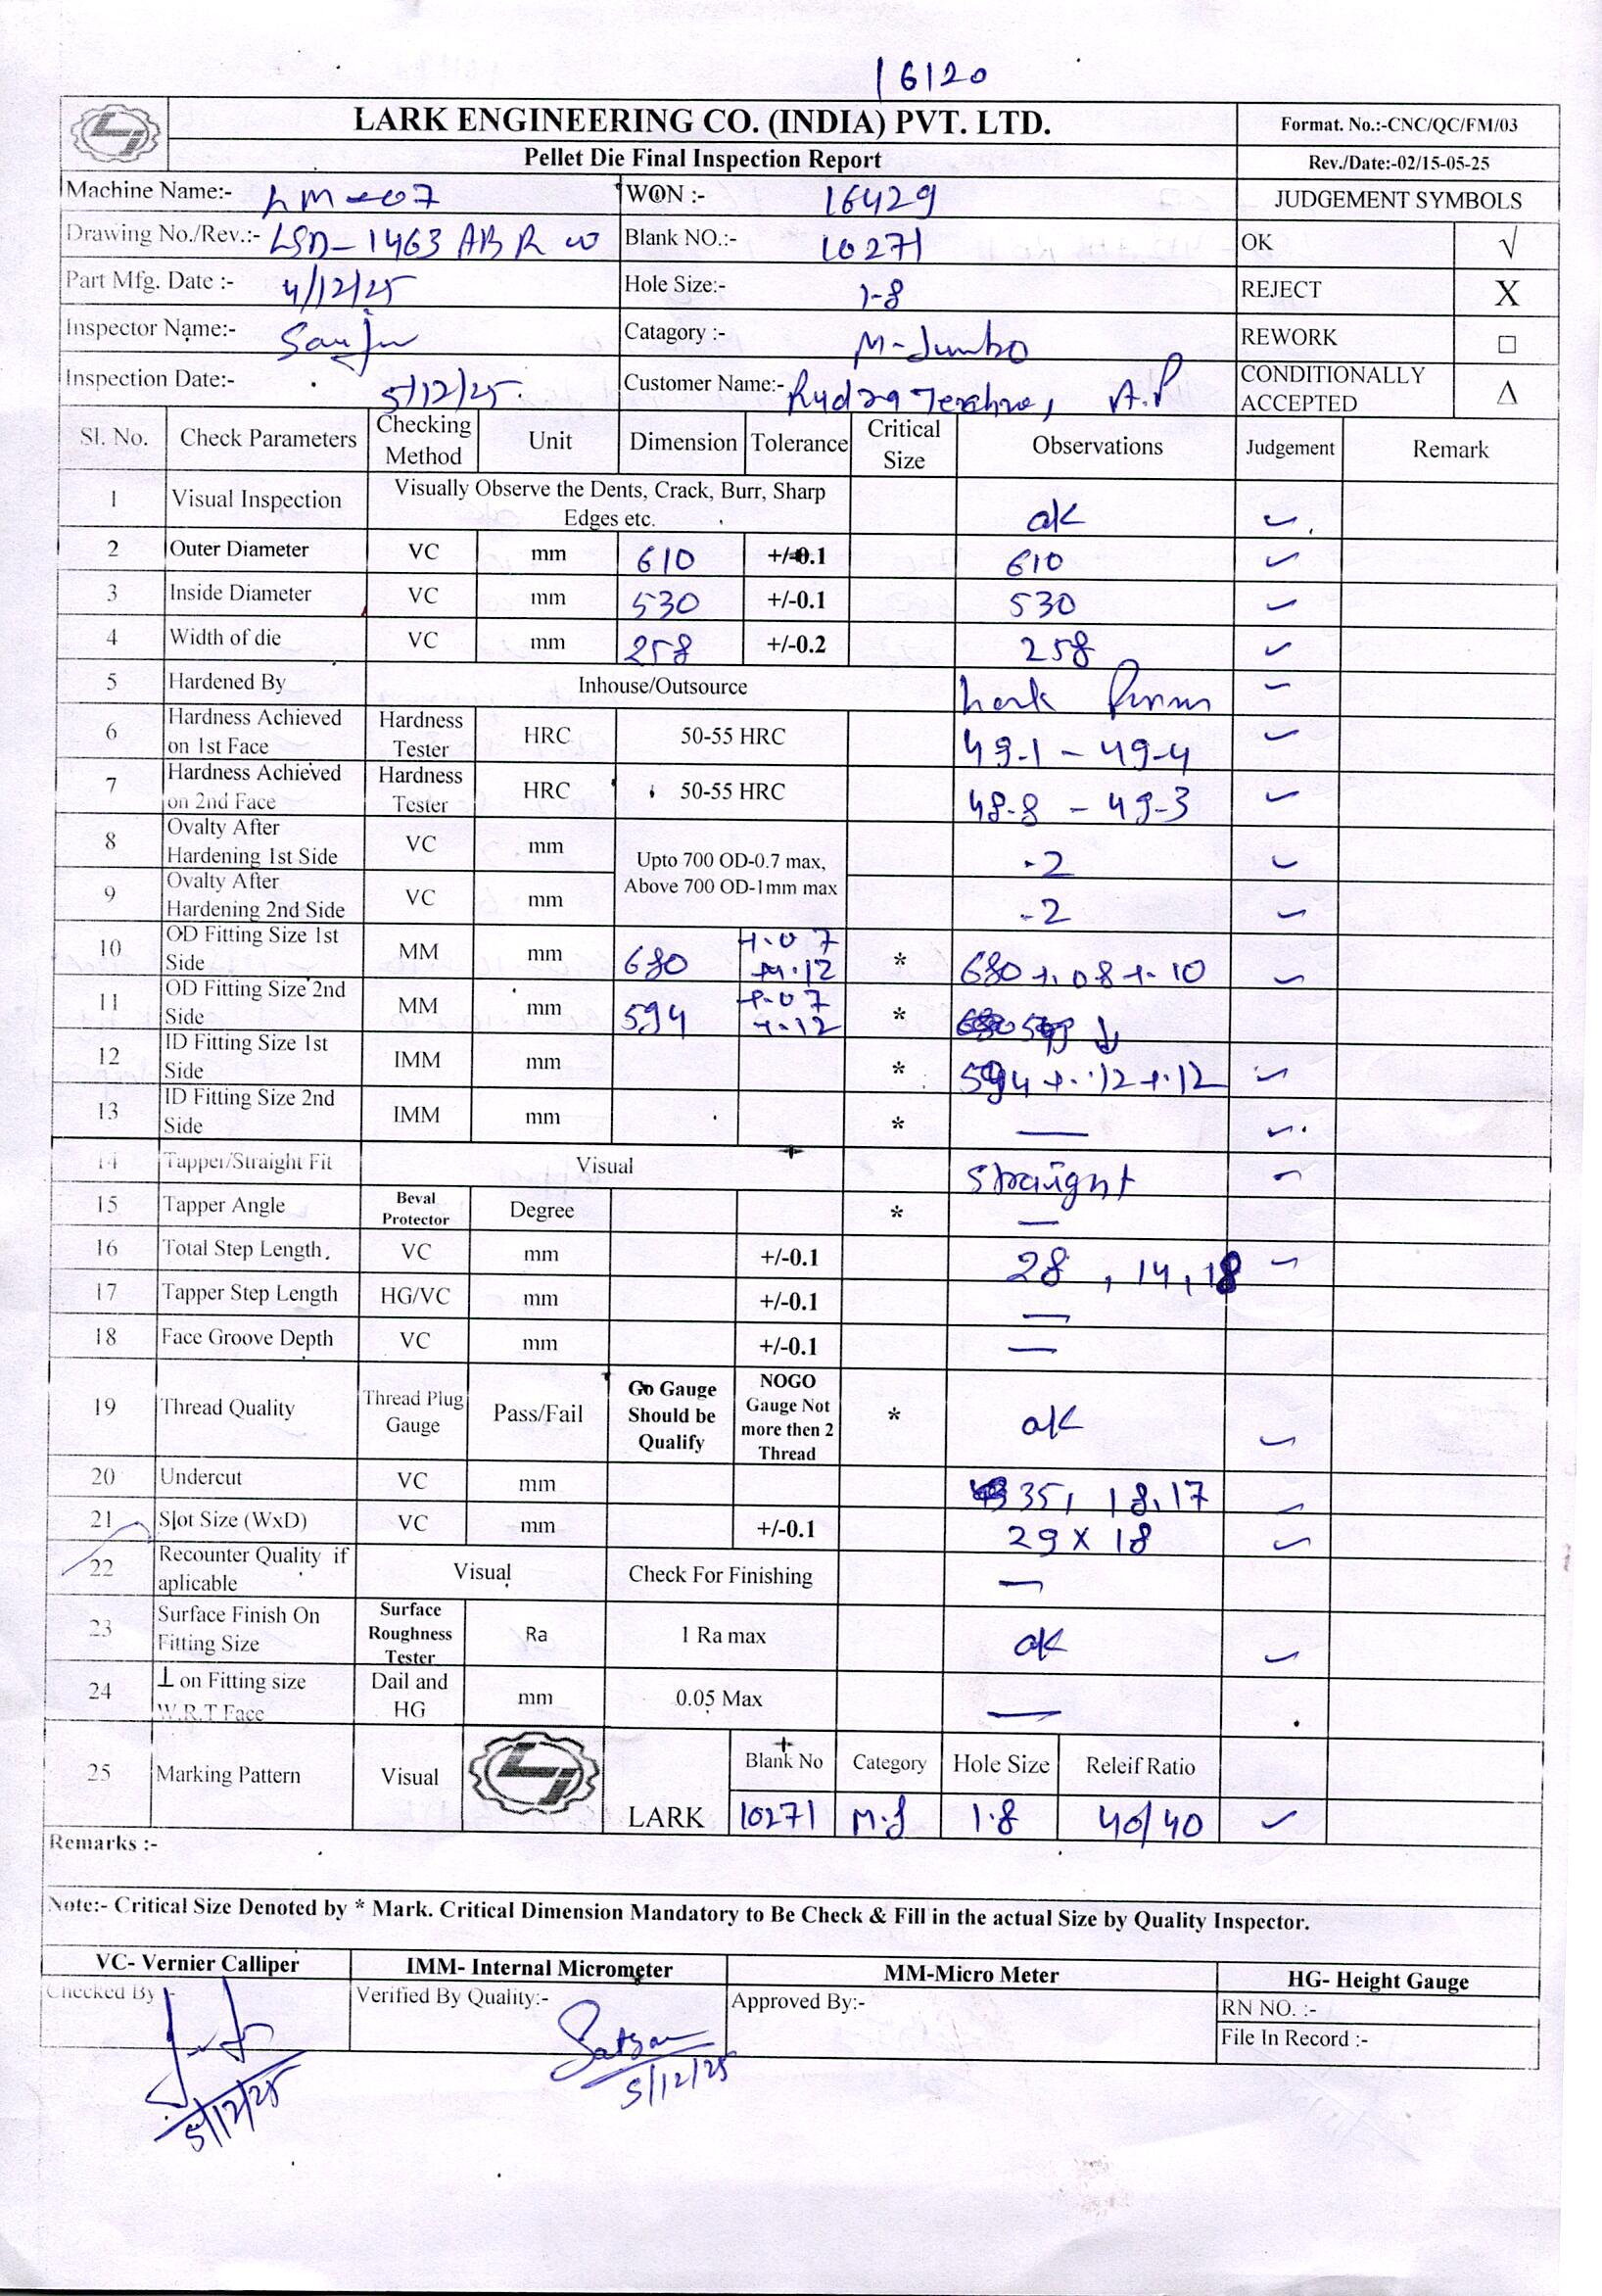 16120
LARK ENGINEERING CO. (INDIA) PVT. LTD.
Format. No.:-CNC/QC/FM/03
Pellet Die Final Inspection Report
Rev./Date:-02/15-05-25
Machine Name:- LM-07 WON :- 16429 JUDGEMENT SYMBOLS
Drawing No./Rev.:- LSD-1463 AB R Blank NO.:- 10271 OK √
Part Mfg. Date :- 4/12/25 Hole Size:- 1-8 REJECT X
Inspector Name:- Sanju Catagory :- M-Jumbo REWORK □
Inspection Date:- 5/12/25. Customer Name:- Rudra A.P CONDITIONALLY ACCEPTED Δ
Sl. No. Check Parameters Checking Method Unit Dimension Tolerance Critical Size Observations Judgement Remark
1 Visual Inspection Visually Observe the Dents, Crack, Burr, Sharp Edges etc. ok ✓
2 Outer Diameter VC mm 610 +/-0.1 610 ✓
3 Inside Diameter VC mm 530 +/-0.1 530 ✓
4 Width of die VC mm 258 +/-0.2 258 ✓
5 Hardened By Inhouse/Outsource Lark ✓
6 Hardness Achieved on 1st Face Hardness Tester HRC 50-55 HRC 49-1 - 49-4 ✓
7 Hardness Achieved on 2nd Face Hardness Tester HRC 50-55 HRC 48-8 - 49-3 ✓
8 Ovalty After Hardening 1st Side VC mm Upto 700 OD-0.7 max, Above 700 OD-1mm max .2 ✓
9 Ovalty After Hardening 2nd Side VC mm .2 ✓
10 OD Fitting Size 1st Side MM mm 680 +.07 +.12 * 680 +.08 +.10 ✓
11 OD Fitting Size 2nd Side MM mm 594 +.07 +.12 * ↓
12 ID Fitting Size 1st Side IMM mm * 594 +.12 +.12 ✓
13 ID Fitting Size 2nd Side IMM mm * — ✓
14 Tapper/Straight Fit Visual straight ✓
15 Tapper Angle Beval Protector Degree * —
16 Total Step Length. VC mm +/-0.1 28 , 14, 18 ✓
17 Tapper Step Length HG/VC mm +/-0.1 —
18 Face Groove Depth VC mm +/-0.1 —
19 Thread Quality Thread Plug Gauge Pass/Fail Go Gauge Should be Qualify NOGO Gauge Not more then 2 Thread * ok ✓
20 Undercut VC mm 35, 18, 17 ✓
21 Slot Size (WxD) VC mm +/-0.1 29 x 18 ✓
22 Recounter Quality if aplicable Visual Check For Finishing —
23 Surface Finish On Fitting Size Surface Roughness Tester Ra 1 Ra max ok ✓
24 ⊥ on Fitting size W.R.T Face Dail and HG mm 0.05 Max —
25 Marking Pattern Visual LARK Blank No Category Hole Size Releif Ratio
10271 M.J 1.8 40/40 ✓
Remarks :-
Note:- Critical Size Denoted by * Mark. Critical Dimension Mandatory to Be Check & Fill in the actual Size by Quality Inspector.
VC- Vernier Calliper IMM- Internal Micrometer MM-Micro Meter HG- Height Gauge
Checked By :- Verified By Quality:- Approved By:- RN NO. :-
File In Record :-
5/12/25 5/12/25